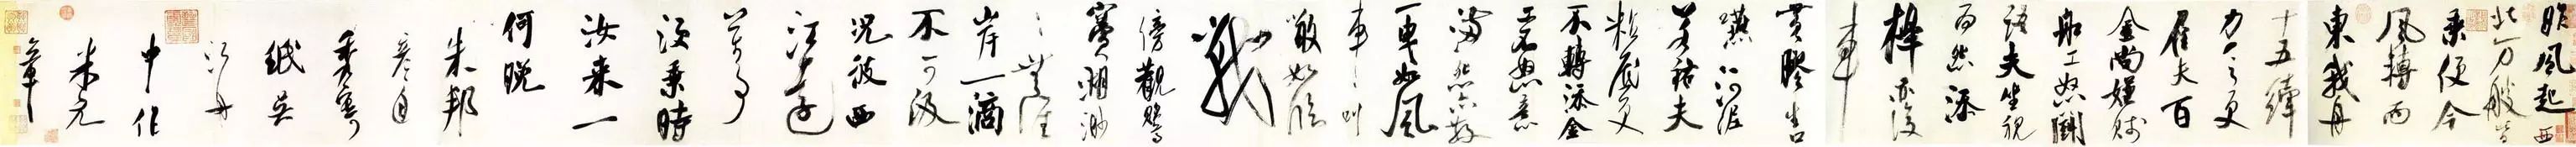 昨風起西
北万艘皆
乘便今
風轉而
東我舟
十五縴
力乏更
雇夫百
金尚嫌賤
船工怒鬭
語夫坐視
而怨添
槹亦復
車
黃膠生口
嚥河泥
若祐夫
粘底更
不轉添金
工不怒意
滿怨亦散
一曳如風
車叫
噉如臨
戰
傍觀鶯
竇湖渺
渺無涯
岸一滴
不可汲
況彼西
江遠
萬事
須乘時
汝來一
何晚
朱邦
彥自
秀寄
紙吳
江舟
中作
米元
章